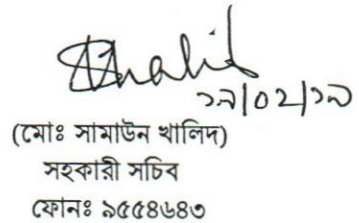 ১৯/০২/১৯
(মোঃ সামাউন খালিদ)
সহকারী সচিব
ফোনঃ ৯৫৫৪৬৪৩